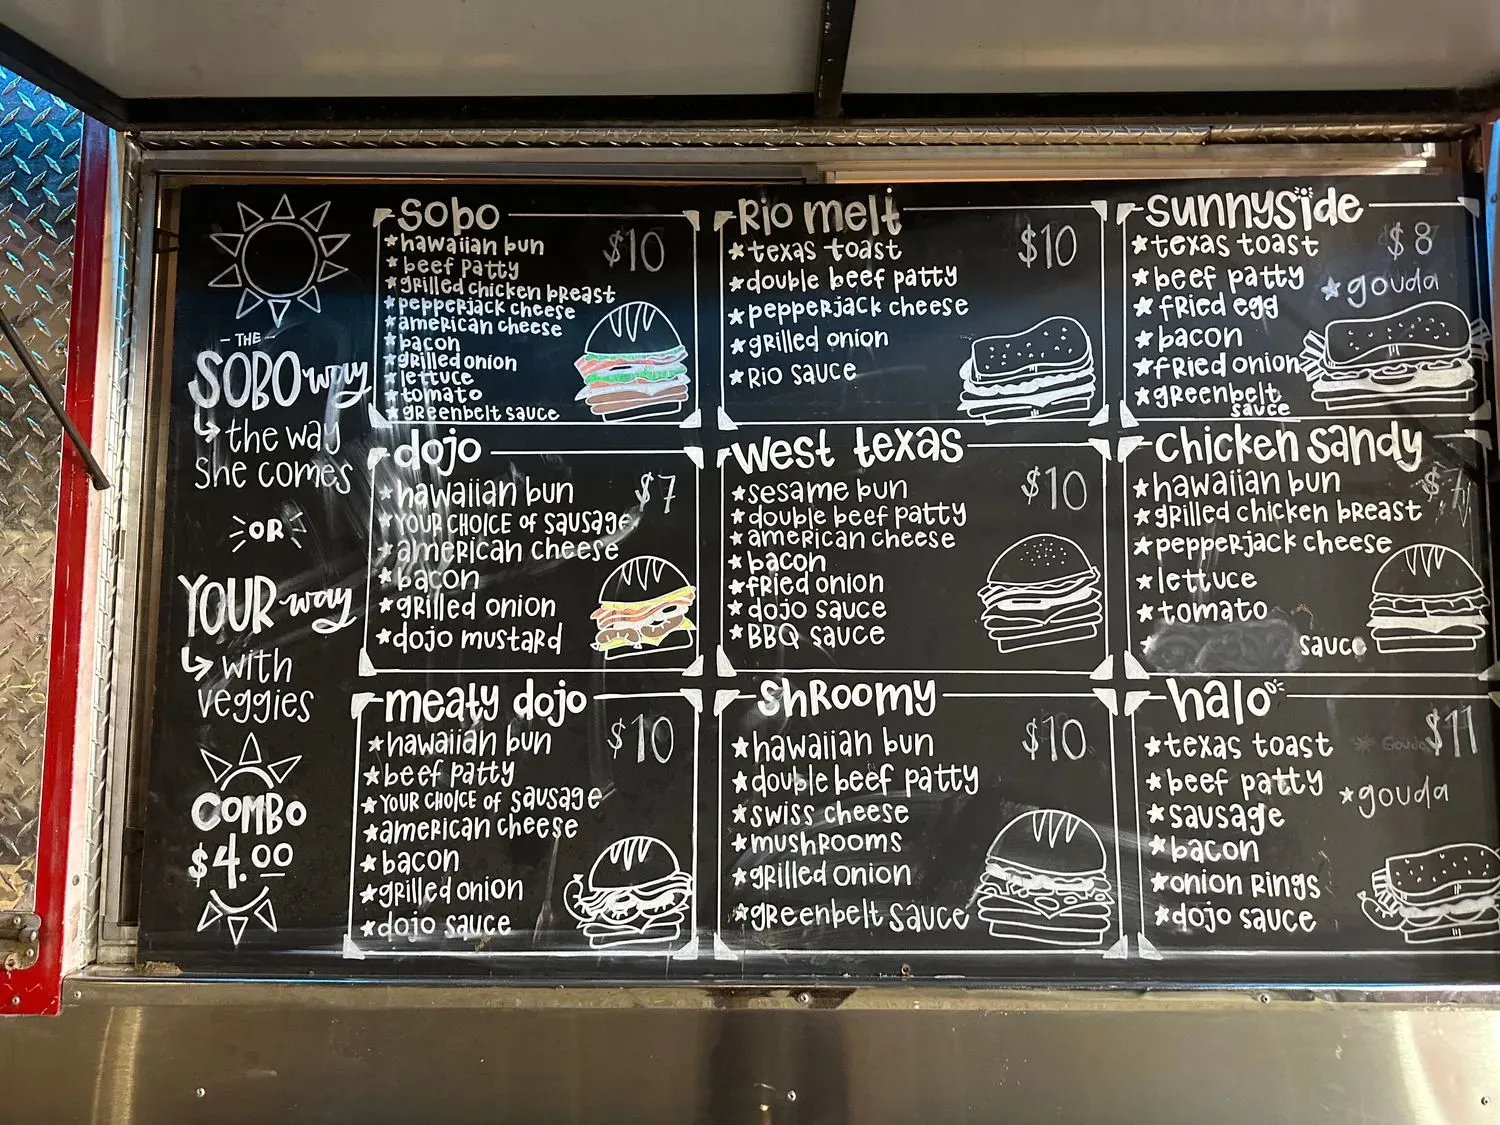 THE
SOBO way
the way
She comes
OR
YOUR way
with
veggies
COMBO
$4.00
SOBO
$10
hawaiian bun
beef patty
grilled chicken breast
pepperjack cheese
american cheese
bacon
grilled onion
lettuce
tomato
greenbelt sauce
Rio melt
$10
texas toast
double beef patty
pepperjack cheese
grilled onion
Rio sauce
sunnyside
$8
texas toast
beef patty
gouda
fried egg
bacon
fried onion
greenbelt
sauce
dojo
$7
hawaiian bun
YOUR CHOICE of sausage
american cheese
bacon
grilled onion
dojo mustard
west texas
$10
sesame bun
double beef patty
american cheese
bacon
fried onion
dojo sauce
BBQ sauce
chicken sandy
$7
hawaiian bun
grilled chicken breast
pepperjack cheese
lettuce
tomato
sauce
meaty dojo
$10
hawaiian bun
beef patty
YOUR CHOICE of sausage
american cheese
bacon
grilled onion
dojo sauce
shroomy
$10
hawaiian bun
double beef patty
swiss cheese
mushrooms
grilled onion
greenbelt sauce
halo
$11
texas toast
Gouda
beef patty
gouda
sausage
bacon
onion rings
dojo sauce